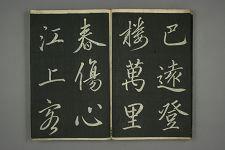 巴遠登
樓萬里
春傷心
江上客